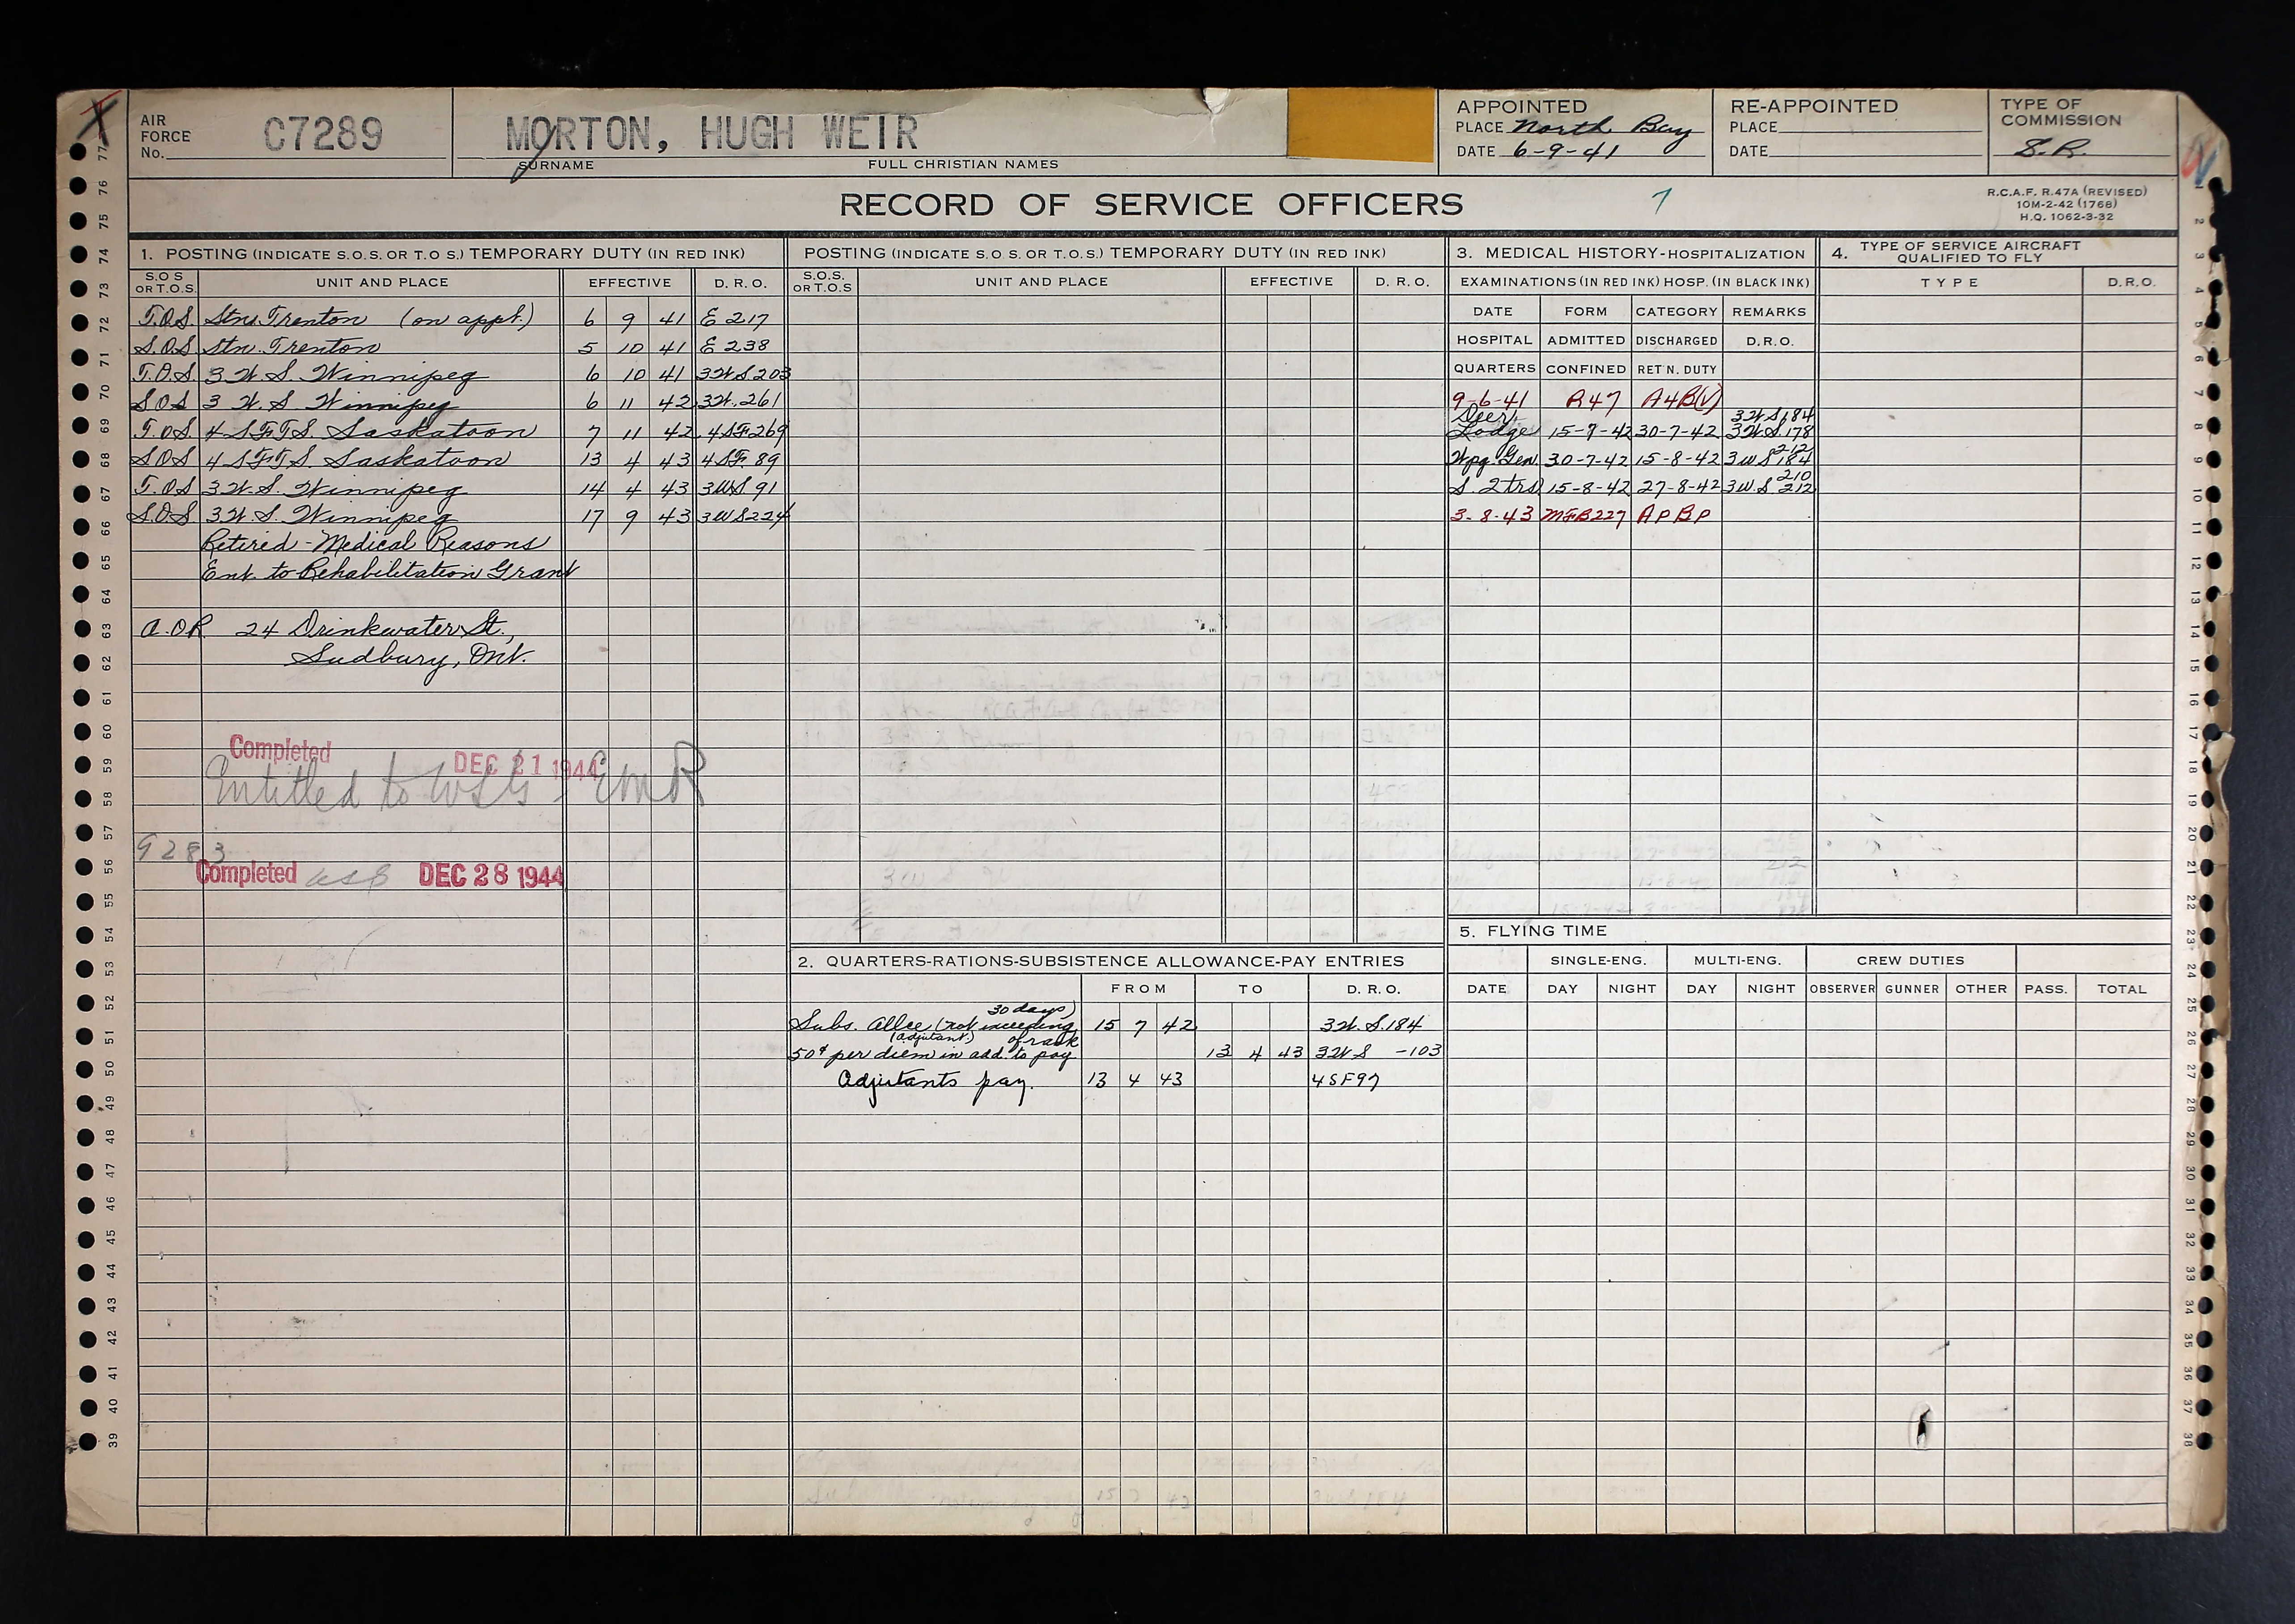 AIR FORCE No. C7289 MORTON, HUGH WEIR
SURNAME FULL CHRISTIAN NAMES
APPOINTED
PLACE North Bay
DATE 6-9-41
RE-APPOINTED
PLACE
DATE
TYPE OF COMMISSION
S.R.
RECORD OF SERVICE OFFICERS
7
R.C.A.F. R.47A (REVISED)
10M-2-42 (1768)
H.Q. 1062-3-32
1. POSTING (INDICATE S.O.S. OR T.O S.) TEMPORARY DUTY (IN RED INK)
S.O.S OR T.O.S. UNIT AND PLACE EFFECTIVE D. R. O.
T.O.S. Stn. Trenton (on appt.) 6 9 41 E 217
S.O.S. Stn. Trenton 5 10 41 E 238
T.O.S. 3 W.S. Winnipeg 6 10 41 3WS203
S.O.S 3 W.S. Winnipeg 6 11 42 3W.261
T.O.S. 4 SFTS. Saskatoon 7 11 42 4SF269
S.O.S 4 SFTS. Saskatoon 13 4 43 4SF. 89
T.O.S 3W.S. Winnipeg 14 4 43 3WS 91
S.O.S 3W.S. Winnipeg 17 9 43 3WS224
Retired - Medical Reasons
Ent. to Rehabilitation Grant
A.O.R 24 Drinkwater St.,
Sudbury, Ont.
Completed DEC 21 1944
Entitled to WSG - EMR
9283
Completed DEC 28 1944
POSTING (INDICATE S.O S. OR T.O.S.) TEMPORARY DUTY (IN RED INK)
S.O.S. OR T.O.S UNIT AND PLACE EFFECTIVE D. R. O.
2. QUARTERS-RATIONS-SUBSISTENCE ALLOWANCE-PAY ENTRIES
FROM TO D. R. O.
30 days)
Subs. Allce (not exceeding 15 7 42 3W.S.184
(adjutant) of rank
50¢ per diem in add. to pay 13 4 43 3WS -103
Adjutants pay. 13 4 43 4SF97
3. MEDICAL HISTORY-HOSPITALIZATION
EXAMINATIONS (IN RED INK) HOSP. (IN BLACK INK)
DATE FORM CATEGORY REMARKS
HOSPITAL ADMITTED DISCHARGED D.R.O.
QUARTERS CONFINED RET'N. DUTY
9-6-41 R47 A4B(V)
Deer 3WS184
Lodge 15-7-42 30-7-42 3WS.178
212
Wpg. Gen. 30-7-42 15-8-42 3WS184
210
S. 2trs 15-8-42 27-8-42 3W.S 212
3-8-43 MFB227 APBP
4. TYPE OF SERVICE AIRCRAFT QUALIFIED TO FLY
TYPE D.R.O.
5. FLYING TIME
SINGLE-ENG. MULTI-ENG. CREW DUTIES
DATE DAY NIGHT DAY NIGHT OBSERVER GUNNER OTHER PASS. TOTAL
77
76
75
74
73
72
71
70
69
68
67
66
65
64
63
62
61
60
59
58
57
56
55
54
53
52
51
50
49
48
47
46
45
44
43
42
41
40
39
2
3
4
5
6
7
8
9
10
11
12
13
14
15
16
17
18
19
20
21
22
23
24
25
26
27
28
29
30
31
32
33
34
35
36
37
38